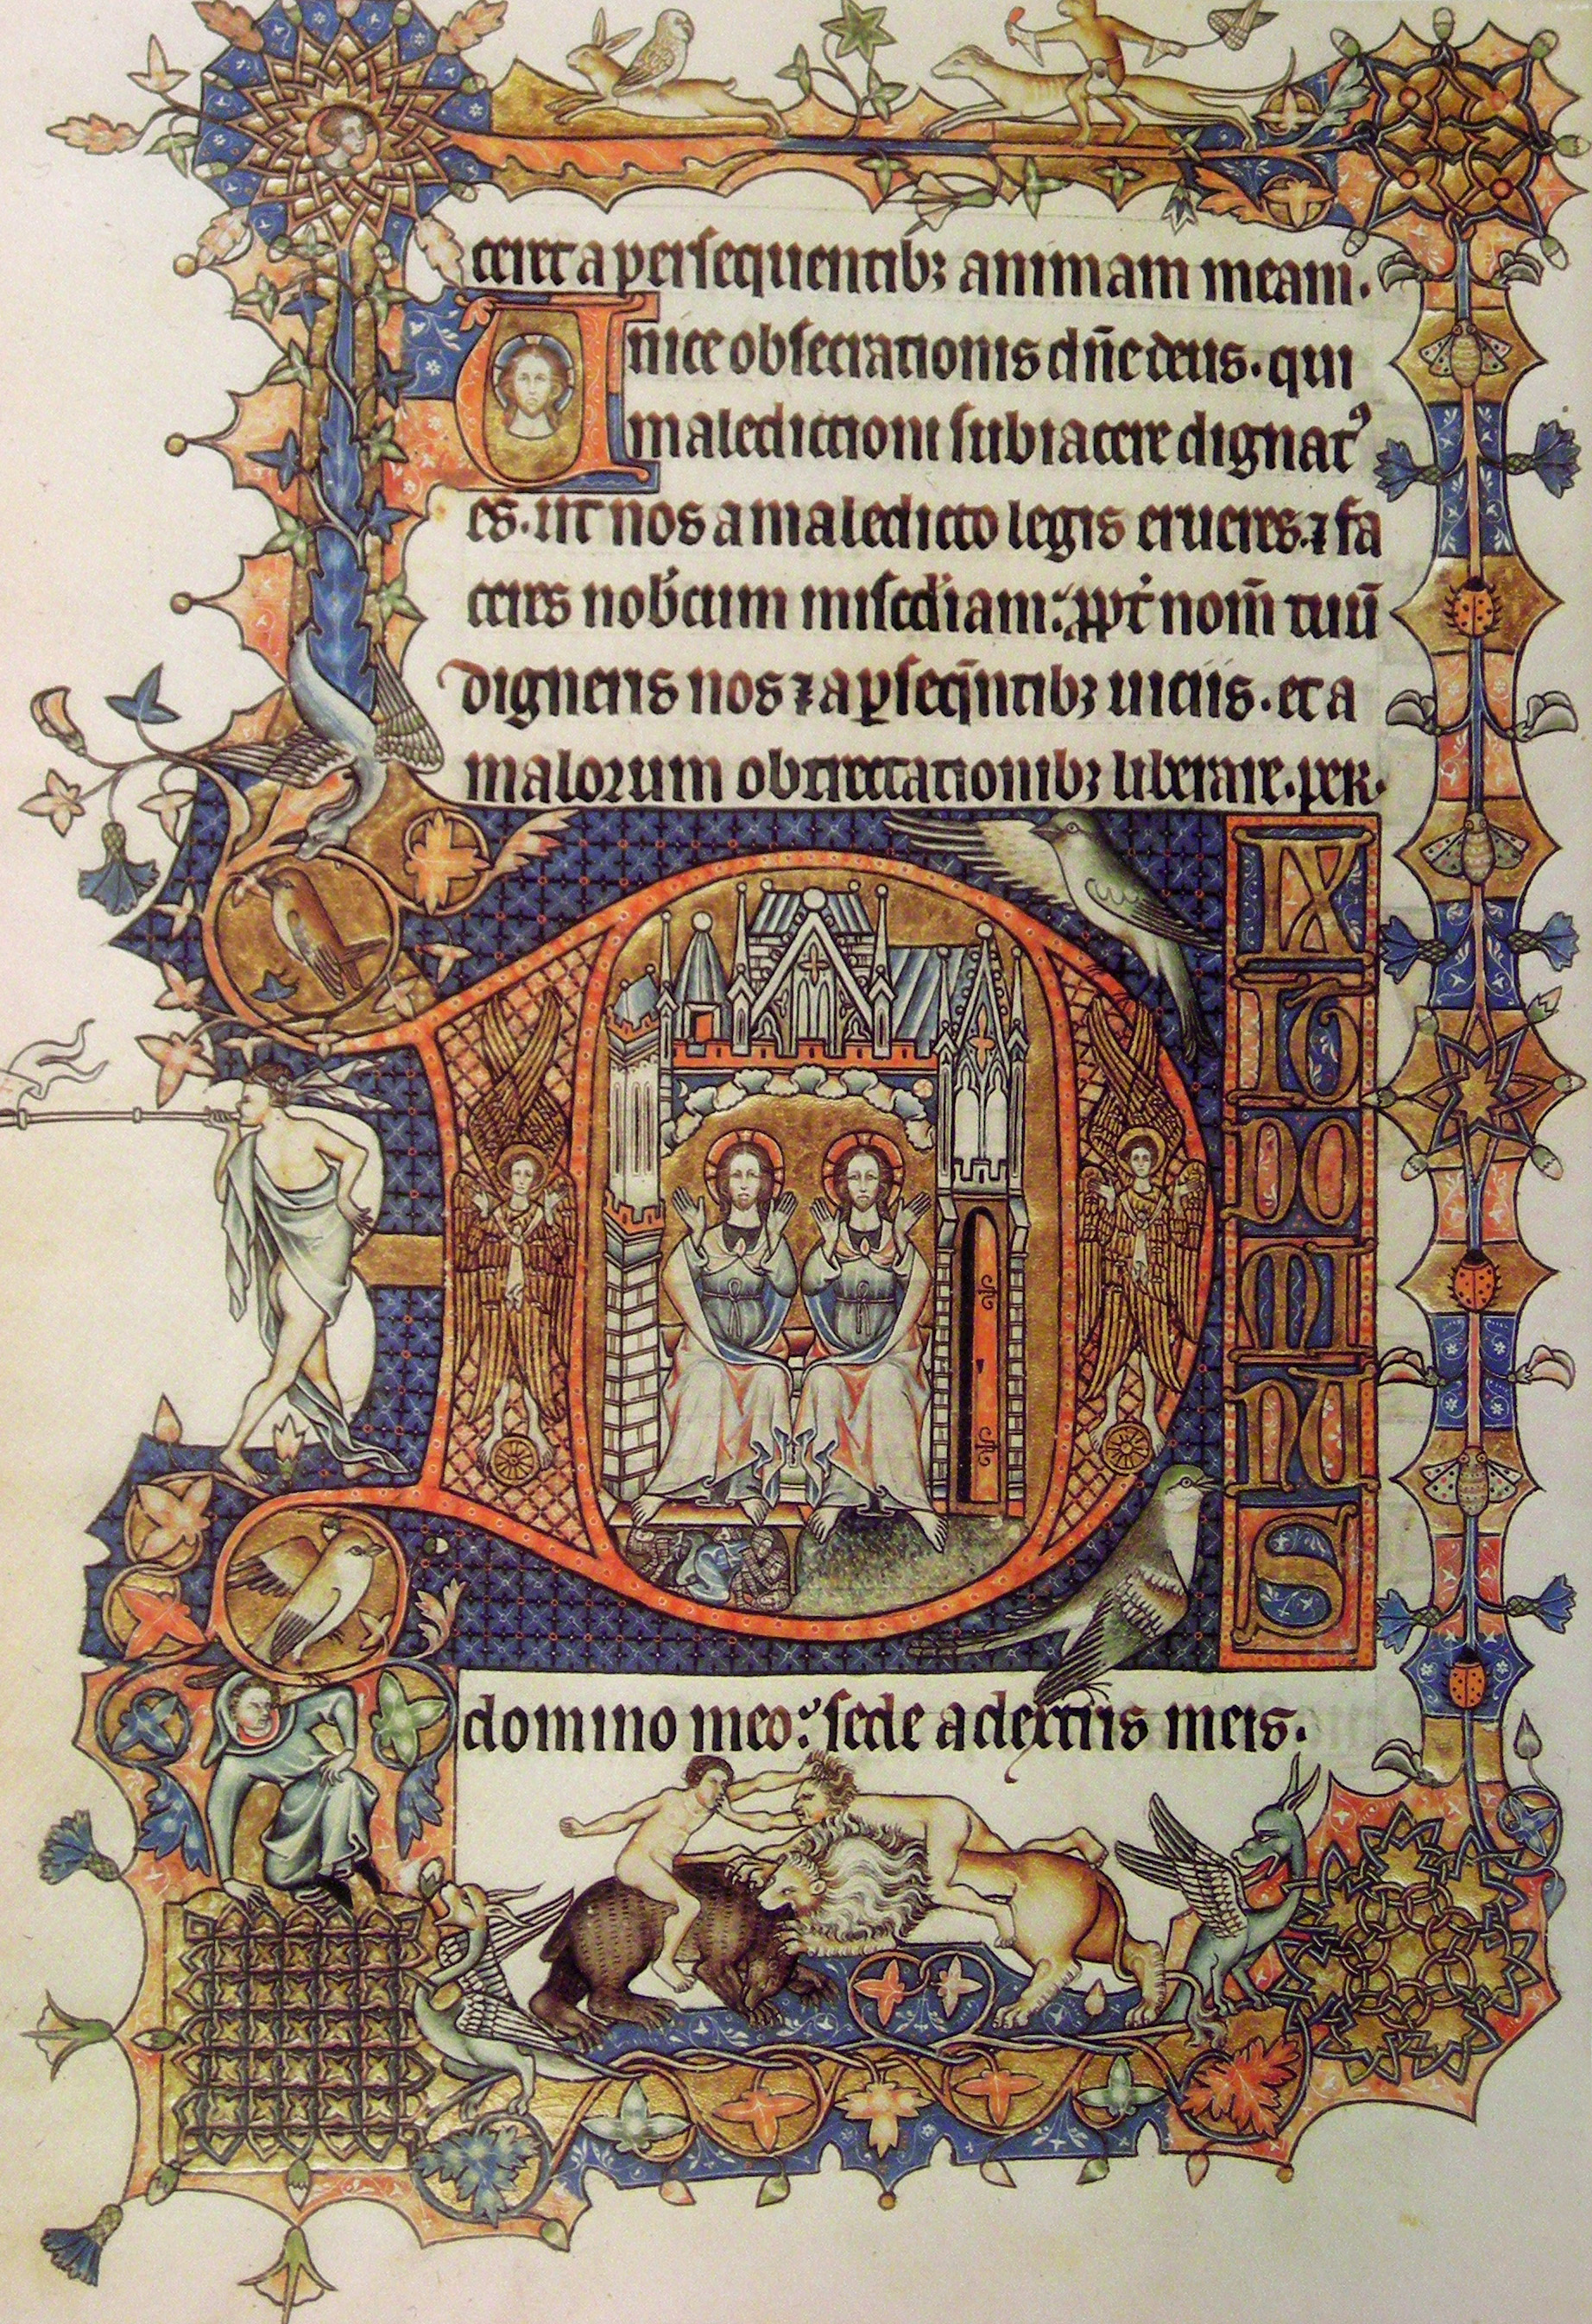 ceret a persequentibꝫ animam meam.
Unice obsecrationis dn̄e deus. qui
maledictioni subiacere dignatꝰ
es. ut nos a maledicto legis erueres. ⁊ fa
ceres nob̾cum misc̾diam: ꝓpt̾ nom̄ tuū
digneris nos ⁊ a ꝑseq̄ntibꝫ uiciis. et a
malorum obtrectationibꝫ liberare. per.
D
IX
IT
DO
MI
NU
S
domino meo: sede a dextris meis.